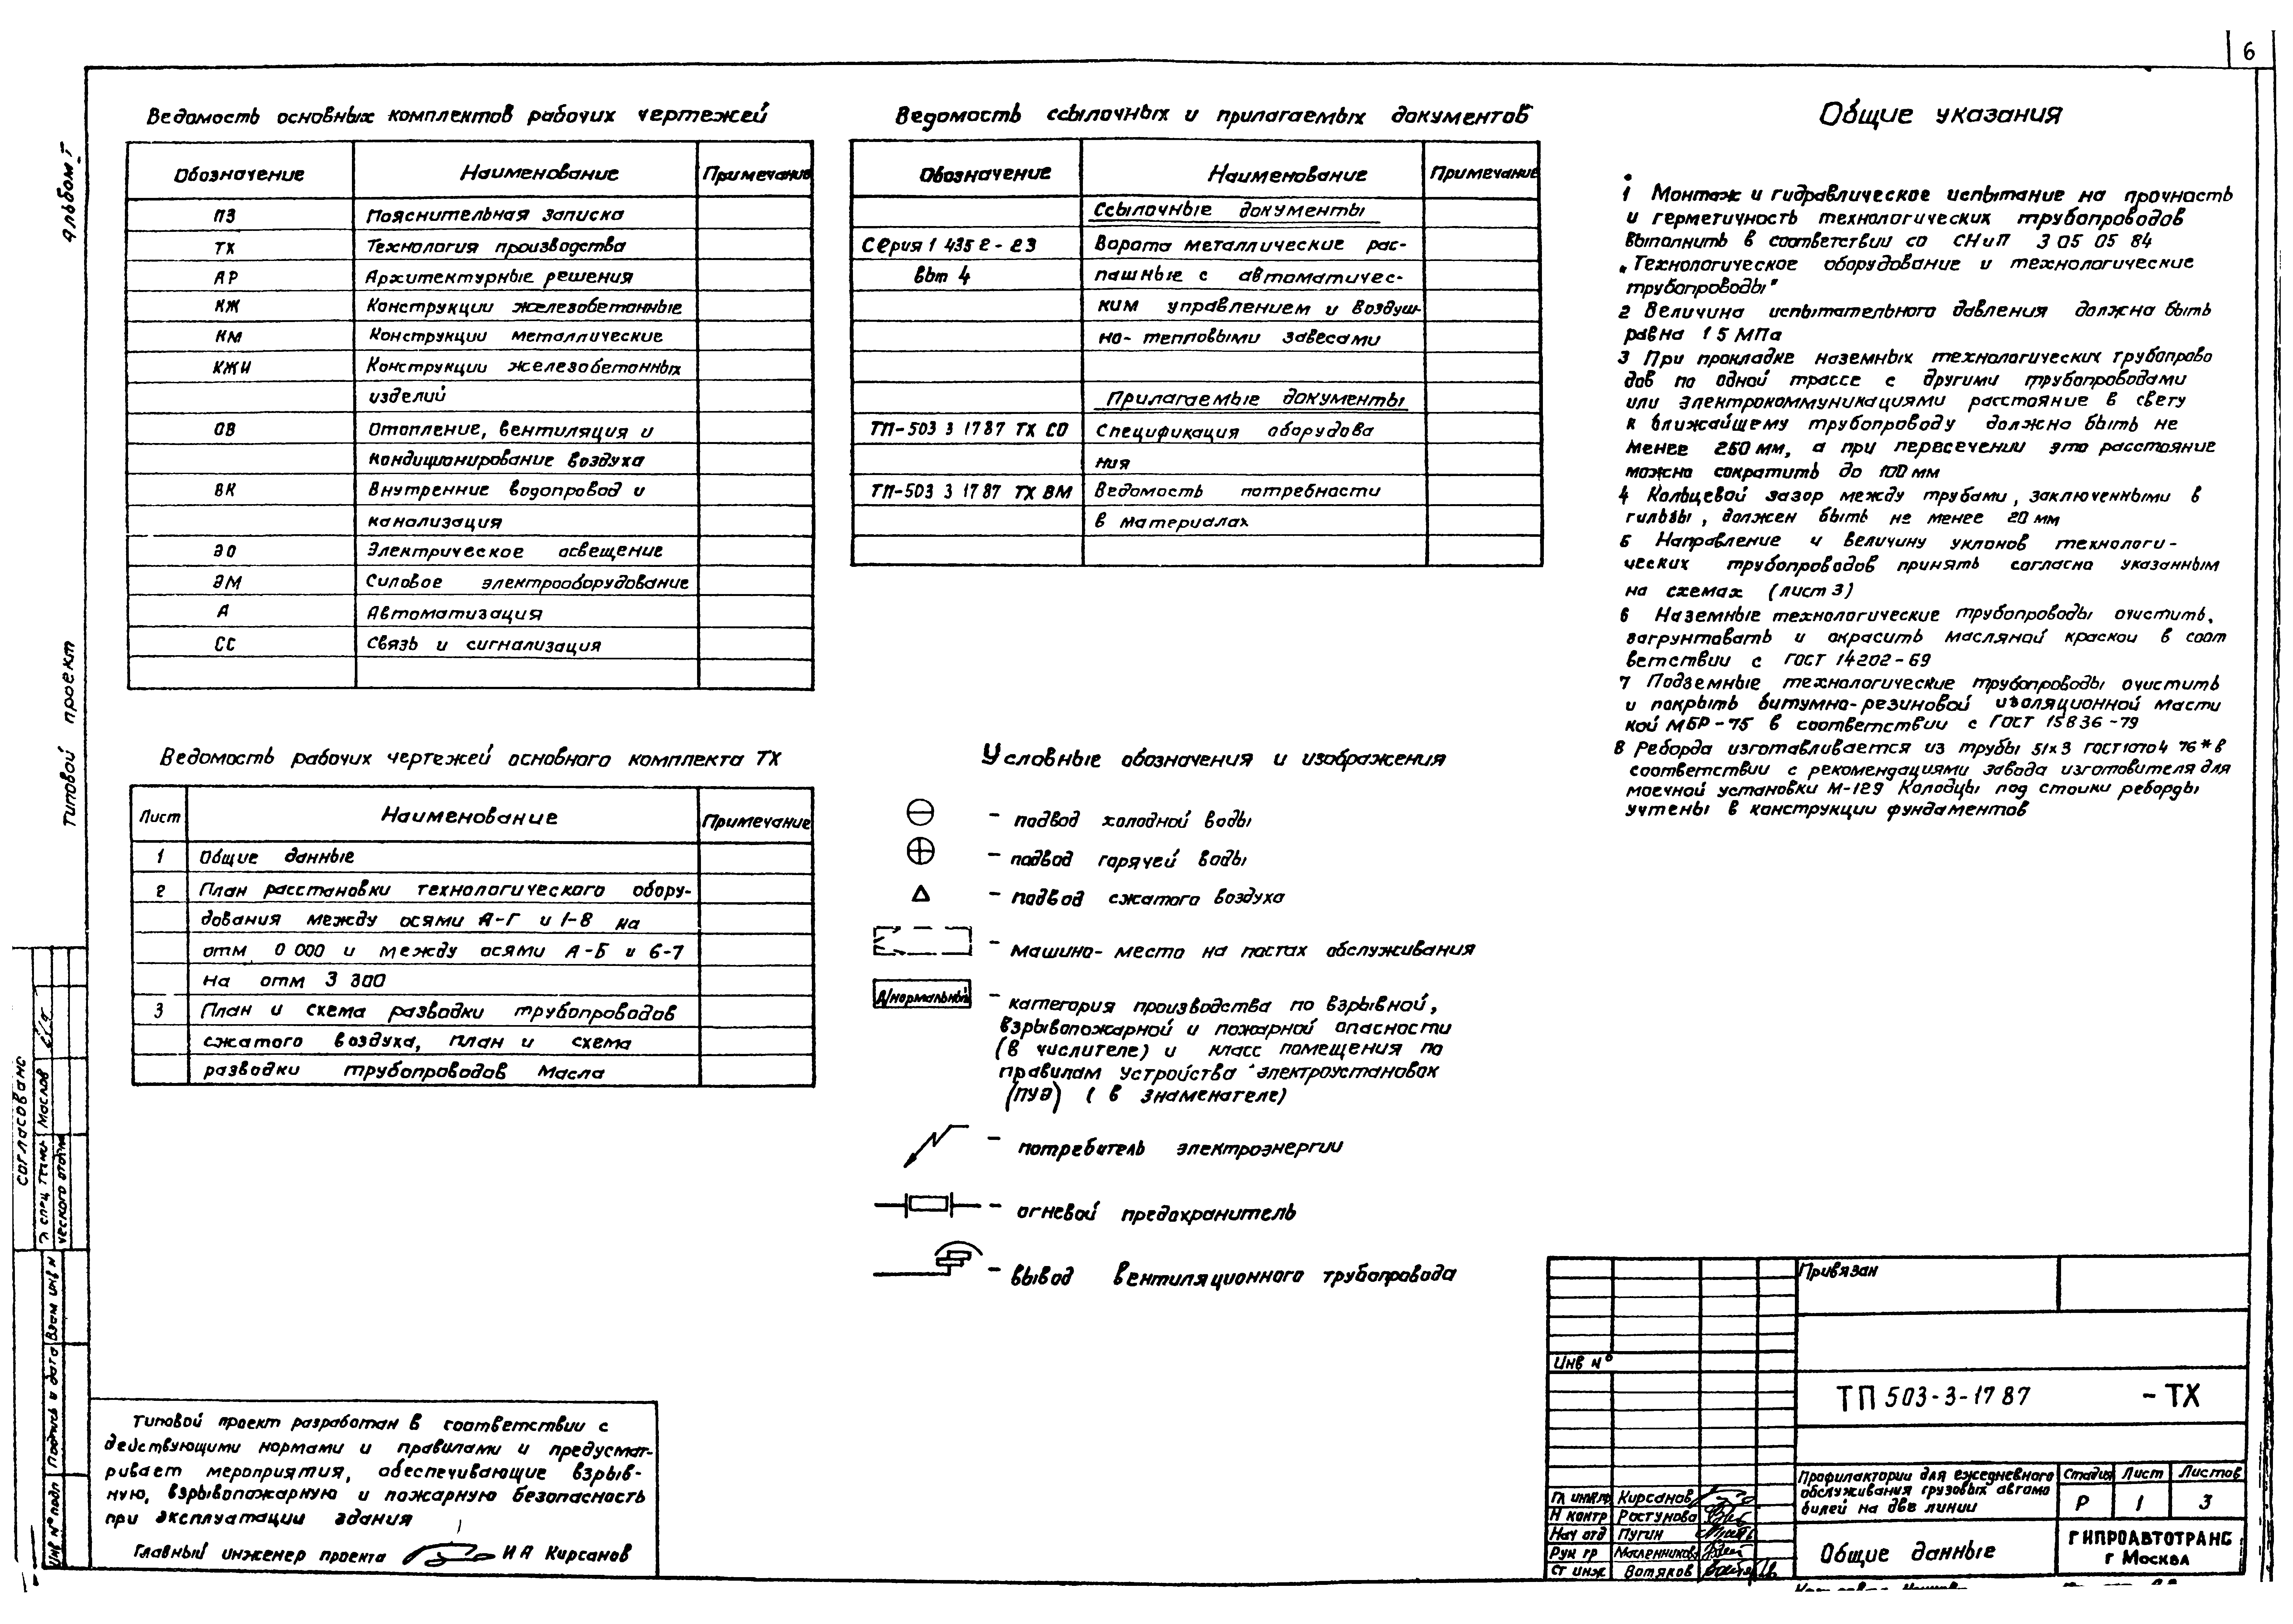 6
Альбом I
Типовой проект
Ведомость основных комплектов рабочих чертежей
Обозначение Наименование Примечание
ПЗ Пояснительная записка
ТХ Технология производства
АР Архитектурные решения
КЖ Конструкции железобетонные
КМ Конструкции металлические
КЖИ Конструкции железобетонных
изделий
ОВ Отопление, вентиляция и
кондиционирование воздуха
ВК Внутренние водопровод и
канализация
ЭО Электрическое освещение
ЭМ Силовое электрооборудование
А Автоматизация
СС Связь и сигнализация
Ведомость рабочих чертежей основного комплекта ТХ
Лист Наименование Примечание
1 Общие данные
2 План расстановки технологического обору-
дования между осями А-Г и 1-8 на
отм 0 000 и между осями А-Б и 6-7
на отм 3 300
3 План и схема разводки трубопроводов
сжатого воздуха, план и схема
разводки трубопроводов масла
Ведомость ссылочных и прилагаемых документов
Обозначение Наименование Примечание
Ссылочные документы
Серия 1 435 2-23 Ворота металлические рас-
вып 4 пашные с автоматичес-
ким управлением и воздуш-
но-тепловыми завесами
Прилагаемые документы
ТП-503 3 17 87 ТХ СО Спецификация оборудова
ния
ТП-503 3 17 87 ТХ ВМ Ведомость потребности
в материалах
Условные обозначения и изображения
- подвод холодной воды
- подвод горячей воды
- подвод сжатого воздуха
- машино-место на постах обслуживания
Д/нормальной - категория производства по взрывной,
взрывопожарной и пожарной опасности
(в числителе) и класс помещения по
правилам устройства электроустановок
(ПУЭ) (в знаменателе)
- потребитель электроэнергии
- огневой предохранитель
- вывод вентиляционного трубопровода
Общие указания
1 Монтаж и гидравлическое испытание на прочность
и герметичность технологических трубопроводов
выполнить в соответствии со СНиП 3 05 05 84
„Технологическое оборудование и технологические
трубопроводы"
2 Величина испытательного давления должна быть
равна 1 5 МПа
3 При прокладке наземных технологических трубопрово
дов по одной трассе с другими трубопроводами
или электрокоммуникациями расстояние в свету
к ближайшему трубопроводу должно быть не
менее 250 мм, а при пересечении это расстояние
можно сократить до 100 мм
4 Кольцевой зазор между трубами, заключенными в
гильзы, должен быть не менее 20 мм
5 Направление и величину уклонов технологи-
ческих трубопроводов принять согласно указанным
на схемах (лист 3)
6 Наземные технологические трубопроводы очистить,
загрунтовать и окрасить масляной краской в соот
ветствии с ГОСТ 14202-69
7 Подземные технологические трубопроводы очистить
и покрыть битумно-резиновой изоляционной масти
кой МБР-75 в соответствии с ГОСТ 15836-79
8 Реборда изготавливается из трубы 51×3 ГОСТ 10704 76* в
соответствии с рекомендациями завода изготовителя для
моечной установки М-129 Колодцы под стойки реборды
учтены в конструкции фундаментов
Типовой проект разработан в соответствии с
действующими нормами и правилами и предусмат-
ривает мероприятия, обеспечивающие взрыв-
ную, взрывопожарную и пожарную безопасность
при эксплуатации здания
Главный инженер проекта И А Кирсанов
Согласовано
Гл спец техно Маслов
ческого отдела
Взам инв №
Подпись и дата
Инв № подл
Привязан
Инв №
ТП 503-3-17 87 -ТХ
Гл инж пр Кирсанов
Н контр Ростунова
Нач отд Пугин
Рук гр Масленников
Ст инж Вотяков
Профилакторий для ежедневного
обслуживания грузовых автомо
билей на две линии
Стадия Лист Листов
Р 1 3
Общие данные
ГИПРОАВТОТРАНС
г Москва